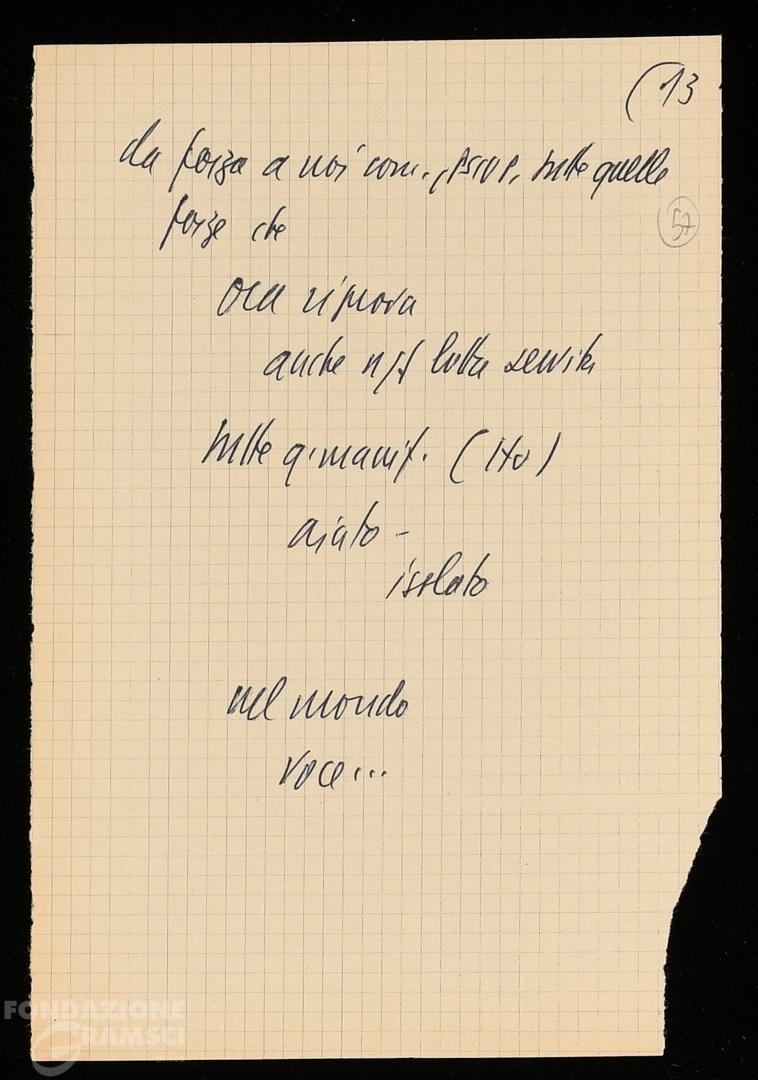 (13
da forza a noi com., PSIUP, tutte quelle
57
forze che
ora riprova
anche n. lotta
tutte q. manif. (
aiuto -
isolato
nel mondo
voce...
FONDAZIONE
GRAMSCI